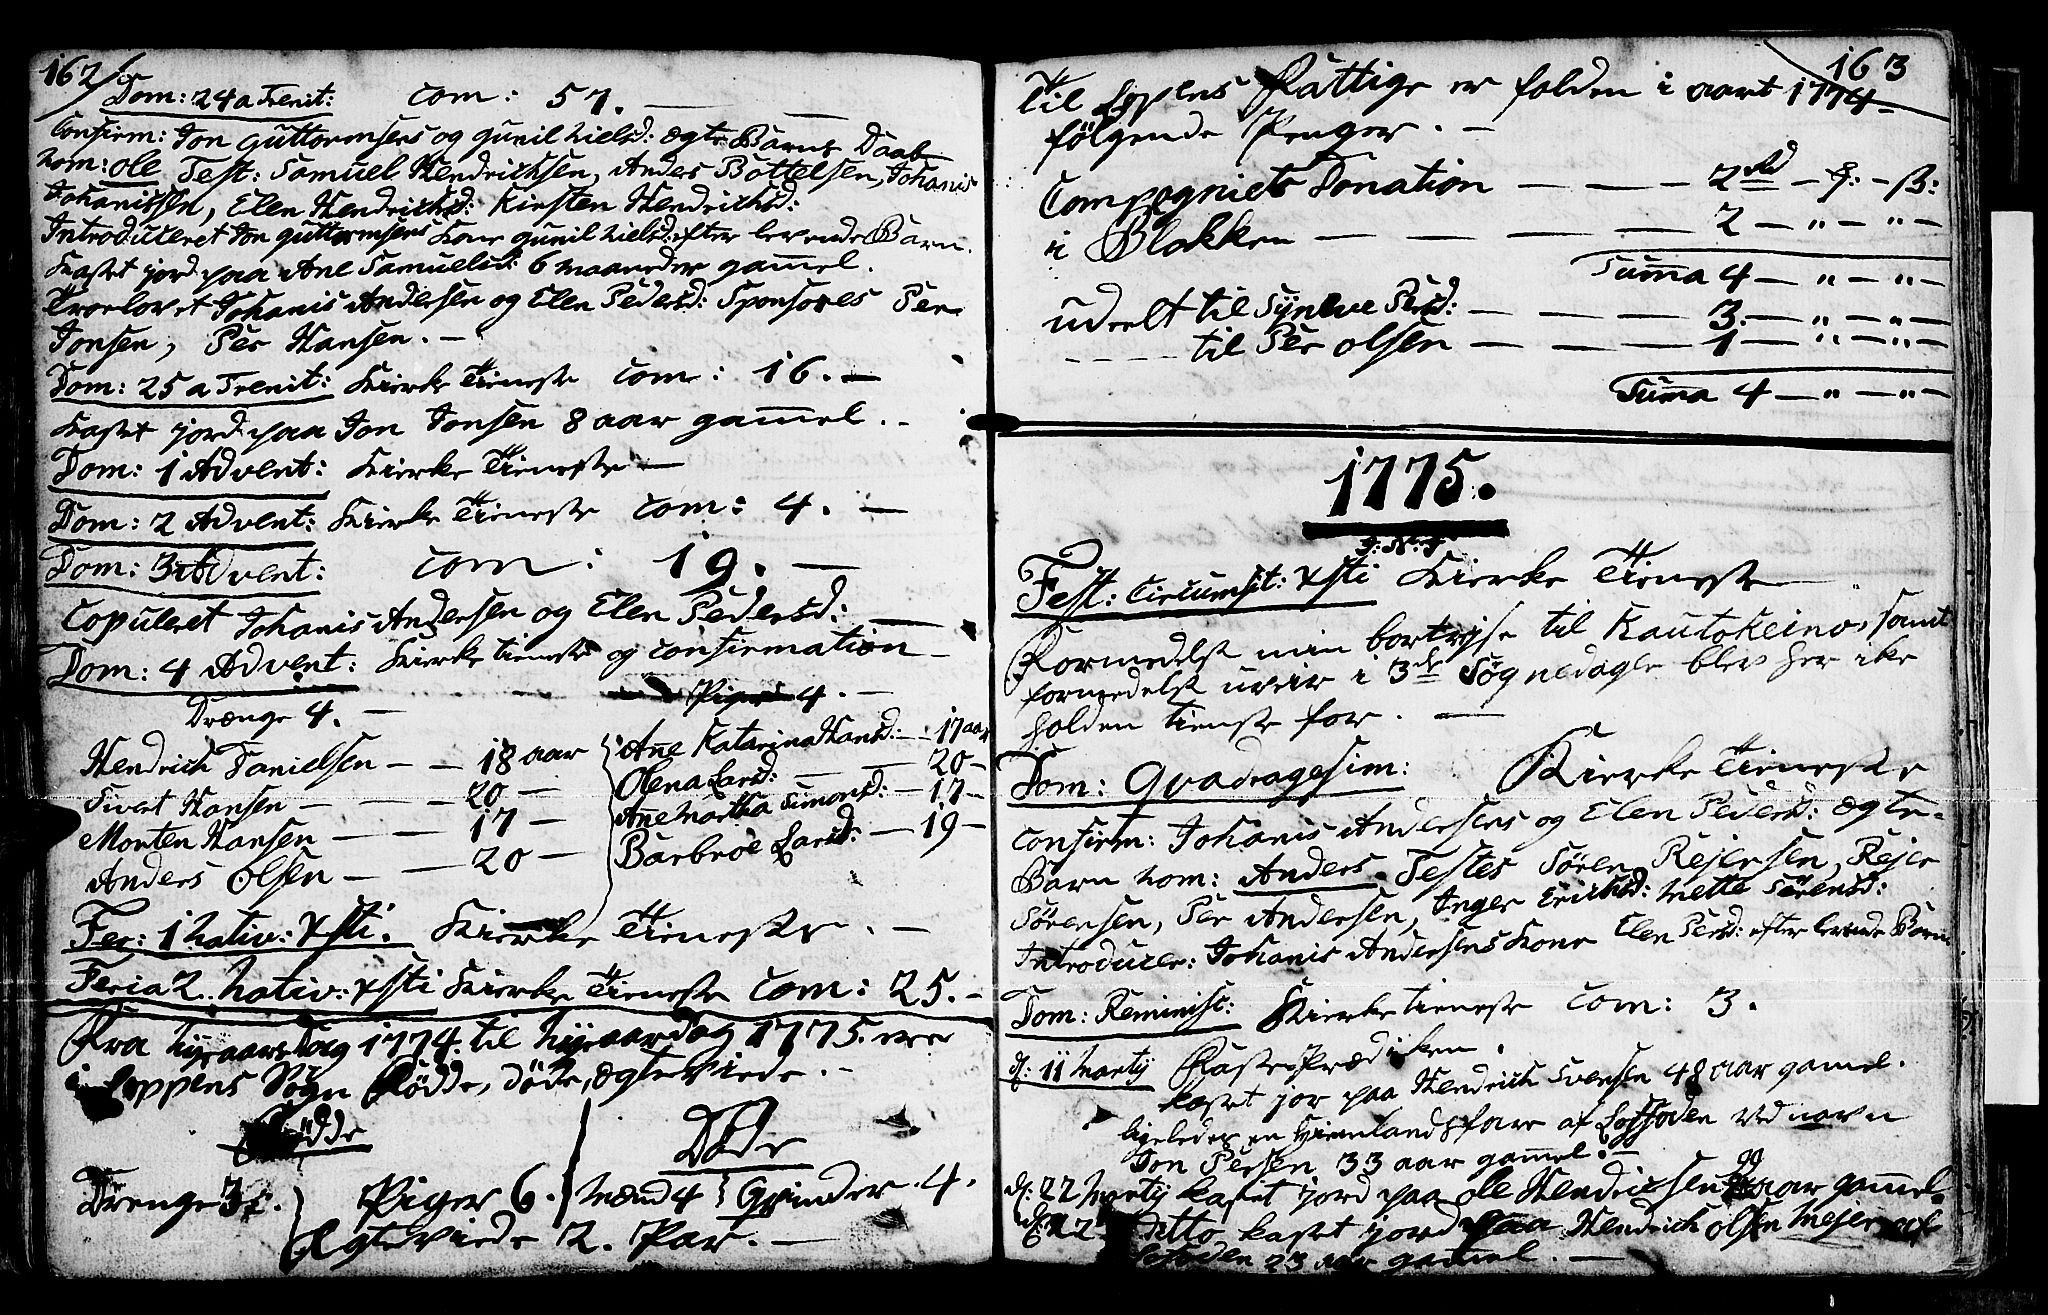 162
Dom: 24 a Trenit: Com: 57. —
Confirm: Jon Guttormsens og Gunil Nielsd: Ægte Barns Daab
nom: Ole Test: Samuel Hendrichsen, Anders Bottelsen, Johanis
Johanissen, Elen Hendrichsd: Kirsten Hendrichsd:
Introduceret Jon Guttormsens Kone Gunil Nielsd: efter levende Barn.
Kastet jord paa Ane Samuelsd: 6 maaneder gammel.
Troelovet Johanis Andersen og Elen Pedersd: Sponsores Per
Jonsen, Per Hansen. —
Dom: 25 a Trenit: Kierke Tieneste Com: 16. —
Kastet jord paa Jon Jonsen 8 aar gammel. —
Dom: 1 Advent: Kierke Tieneste —
Dom: 2 Advent: Kierke Tieneste Com: 4. —
Dom: 3 Advent: Com: 19. —
Copuleret Johanis Andersen og Elen Pedersd: —
Dom: 4 Advent: Kierke tieneste og Confirmation —
Drænge 4. — Piger 4. —
Hendrich Danielsen — — 18 aar Ane Katarina Hansd: — 17 aar
Sivert Hansen — — — 20 — Olena Larsd: — — 20 —
Morten Hansen — — — 17 — Ane Martha Simonsd: — 17 —
Anders Olsen — — — 20 — Barbroe Larsd: — 19 —
Fer: 1 Nativ: Xsti. Kierke Tieneste. —
Feria 2. Nativ: Xsti Kierke Tieneste Com: 25. —
Fra Nyeaars Dag 1774. til Nyeaardag 1775. ere
i Loppens Sogn Fødde, døde, ægteviede. —
Fødde Døde
Drenge 3: Piger 6. Mænd 4 Qvinder. 4.
Ægteviede 2. Par. —
163
Til Loppens Fattige er falden i aart 1774 —
følgende Penger. —
Compagniets Donation — — — 2 rd — ꝑ: — ß:
i Blokken — — — — — 2 — " — " —
Summa 4 — " — " —
udeelt til Synneve Persd: — — — 3. — " — " —
til Per Olsen — — — 1 — " — " —
Summa 4 — " — " —
1775.
J: N: J:
Fest: Circumsit: Xsti Kierke Tieneste —
Formedelst min bortrejse til Kautokeino, samt
formedelst uveir i 3de Søgnedagle blev her ike
holden tieneste for. —
Dom: Qvadragesim: Kierke Tieneste
Confirm: Johanis Andersens og Elen Pedersd: Ægte-
Barn nom: Anders. Testes Sören Rejersen, Rejer
Sörensen, Per Andersen, Inger Erichsd: Mette Sörensd:
Introducer: Johanis Andersens Kone Elen Persd: efter levende Barn
Dom: Reminisc: Kierke tieneste Com: 3.
d: 11 Martij Faste Prædiken.
kastet jor paa Hendrich Svensen 48 aar gamel.
ligeledes en Hiemlandsfare af Lossoden ved navn
Jon Persen 33 aar gammel. —
d: 22 Martij kastet jord paa Ole Hendricksen 99 aar gammel
d: 22 ditto kastet jord paa Hendrich Olsen Mejer af
Lofoden 23 aar gammel. —